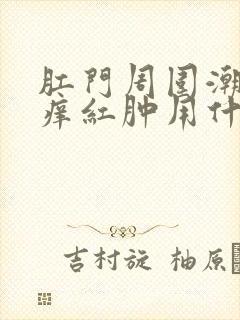 肛門周围潮
痒紅肿用什
吉村旋 柚原